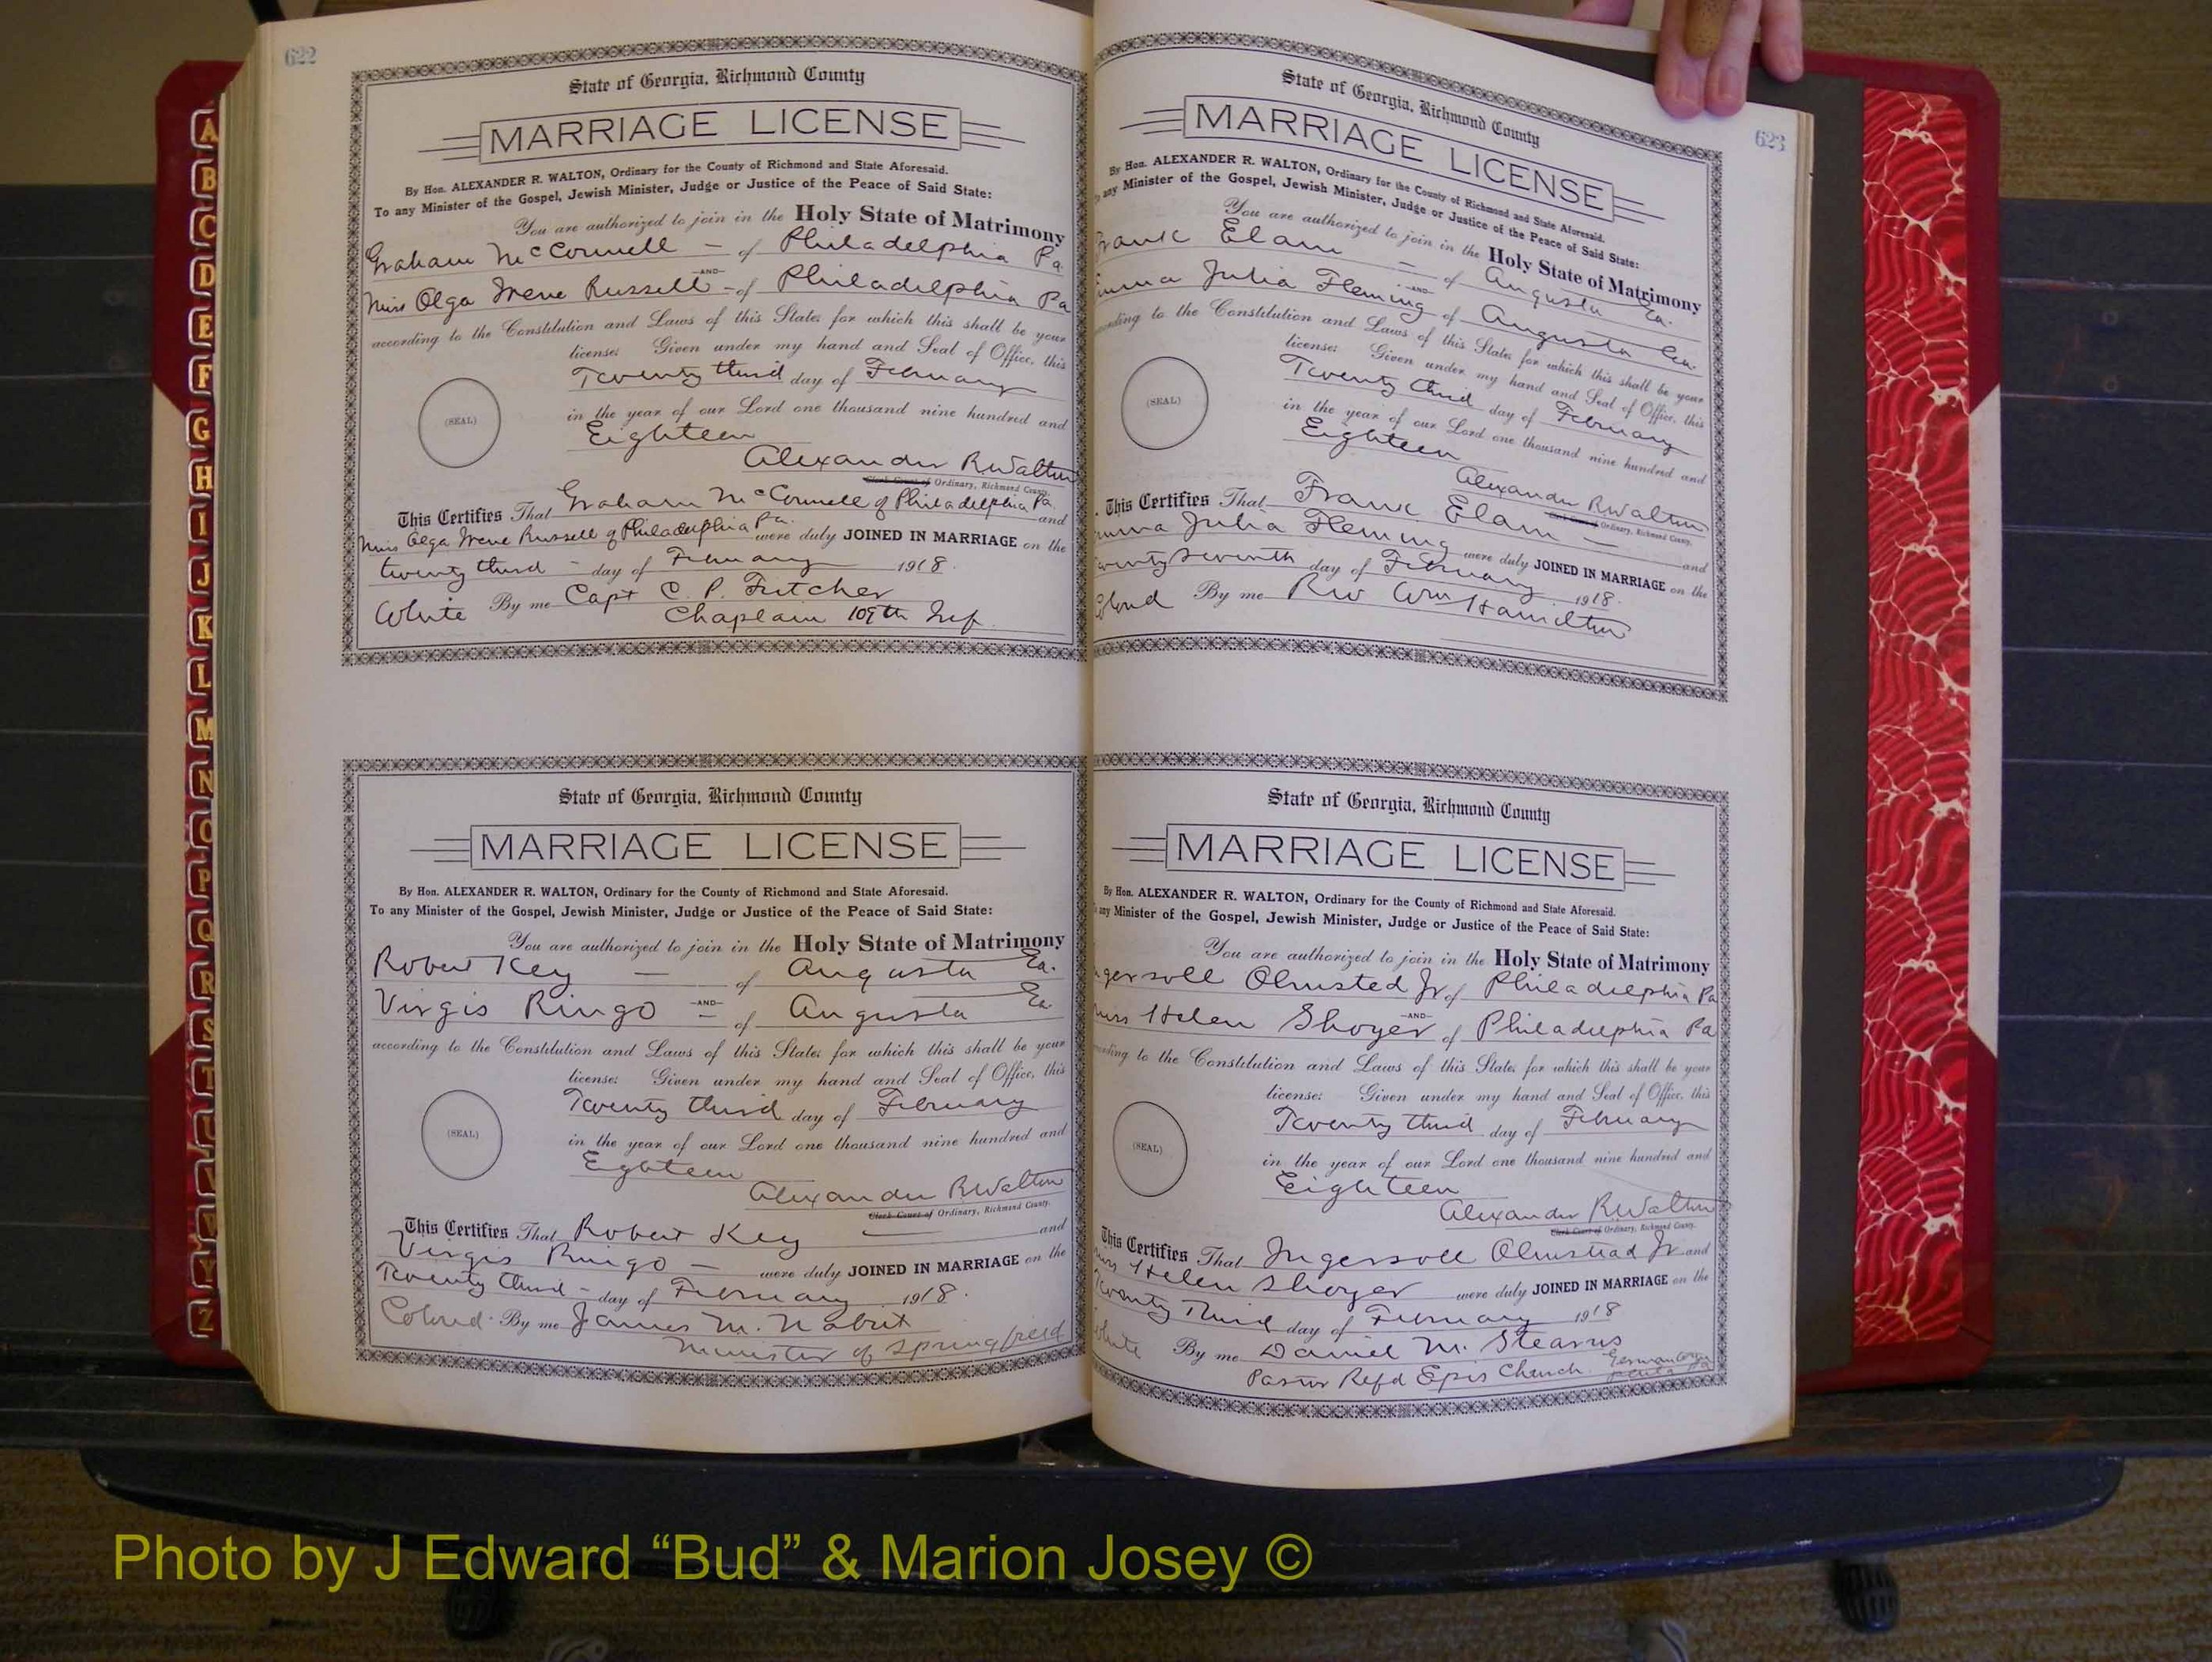 622
State of Georgia, Richmond County
MARRIAGE LICENSE
By Hon. ALEXANDER R. WALTON, Ordinary for the County of Richmond and State Aforesaid.
To any Minister of the Gospel, Jewish Minister, Judge or Justice of the Peace of Said State:
You are authorized to join in the Holy State of Matrimony
Graham McConnell — of Philadelphia Pa
AND
Miss Olga Irene Russell - of Philadelphia Pa
according to the Constitution and Laws of this State; for which this shall be your
license: Given under my hand and Seal of Office, this
Twenty third day of February
(SEAL)
in the year of our Lord one thousand nine hundred and
Eighteen
Alexander R Walton
Clerk Court of Ordinary, Richmond County.
This Certifies That Graham McConnell of Philadelphia Pa. and
Miss Olga Irene Russell of Philadelphia Pa. were duly JOINED IN MARRIAGE on the
twenty third - day of February 1918.
White By me Capt C. P. Futcher
Chaplain 109th Inf.
State of Georgia, Richmond County
MARRIAGE LICENSE
By Hon. ALEXANDER R. WALTON, Ordinary for the County of Richmond and State Aforesaid.
To any Minister of the Gospel, Jewish Minister, Judge or Justice of the Peace of Said State:
You are authorized to join in the Holy State of Matrimony
Robert Key — of Augusta Ga.
AND
Virgis Ringo — of Augusta Ga
according to the Constitution and Laws of this State; for which this shall be your
license: Given under my hand and Seal of Office, this
Twenty third day of February
(SEAL)
in the year of our Lord one thousand nine hundred and
Eighteen
Alexander R Walton
Clerk Court of Ordinary, Richmond County.
This Certifies That Robert Key — and
Virgis Ringo — were duly JOINED IN MARRIAGE on the
Twenty third - day of February 1918.
Colored - By me James M. Nabrit
Minister of Springfield
623
State of Georgia, Richmond County
MARRIAGE LICENSE
By Hon. ALEXANDER R. WALTON, Ordinary for the County of Richmond and State Aforesaid.
any Minister of the Gospel, Jewish Minister, Judge or Justice of the Peace of Said State:
You are authorized to join in the Holy State of Matrimony
Frank Elam — of Augusta Ga.
AND
Emma Julia Fleming of Augusta Ga.
according to the Constitution and Laws of this State; for which this shall be your
license: Given under my hand and Seal of Office, this
Twenty third day of February
(SEAL)
in the year of our Lord one thousand nine hundred and
Eighteen
Alexander R Walton
Clerk Court of Ordinary, Richmond County.
This Certifies That Frank Elam — and
Emma Julia Fleming were duly JOINED IN MARRIAGE on the
twenty seventh day of February 1918.
Colored By me Rev Wm Hamilton
State of Georgia, Richmond County
MARRIAGE LICENSE
By Hon. ALEXANDER R. WALTON, Ordinary for the County of Richmond and State Aforesaid.
any Minister of the Gospel, Jewish Minister, Judge or Justice of the Peace of Said State:
You are authorized to join in the Holy State of Matrimony
Ingersoll Olmsted Jr of Philadelphia Pa
AND
Miss Helen Shoyer of Philadelphia Pa
according to the Constitution and Laws of this State; for which this shall be your
license: Given under my hand and Seal of Office, this
Twenty third day of February
(SEAL)
in the year of our Lord one thousand nine hundred and
Eighteen
Alexander R Walton
Clerk Court of Ordinary, Richmond County.
This Certifies That Ingersoll Olmstead Jr and
Miss Helen Shoyer were duly JOINED IN MARRIAGE on the
Twenty Third day of February 1918
White By me Daniel M. Stearns
Pastor Refd Epis Church. Germantown
A
B
C
D
E
F
G
H
I
J
K
L
M
N
O
P
Q
R
S
T
U
V
W
Y
Z
Photo by J Edward “Bud” & Marion Josey ©